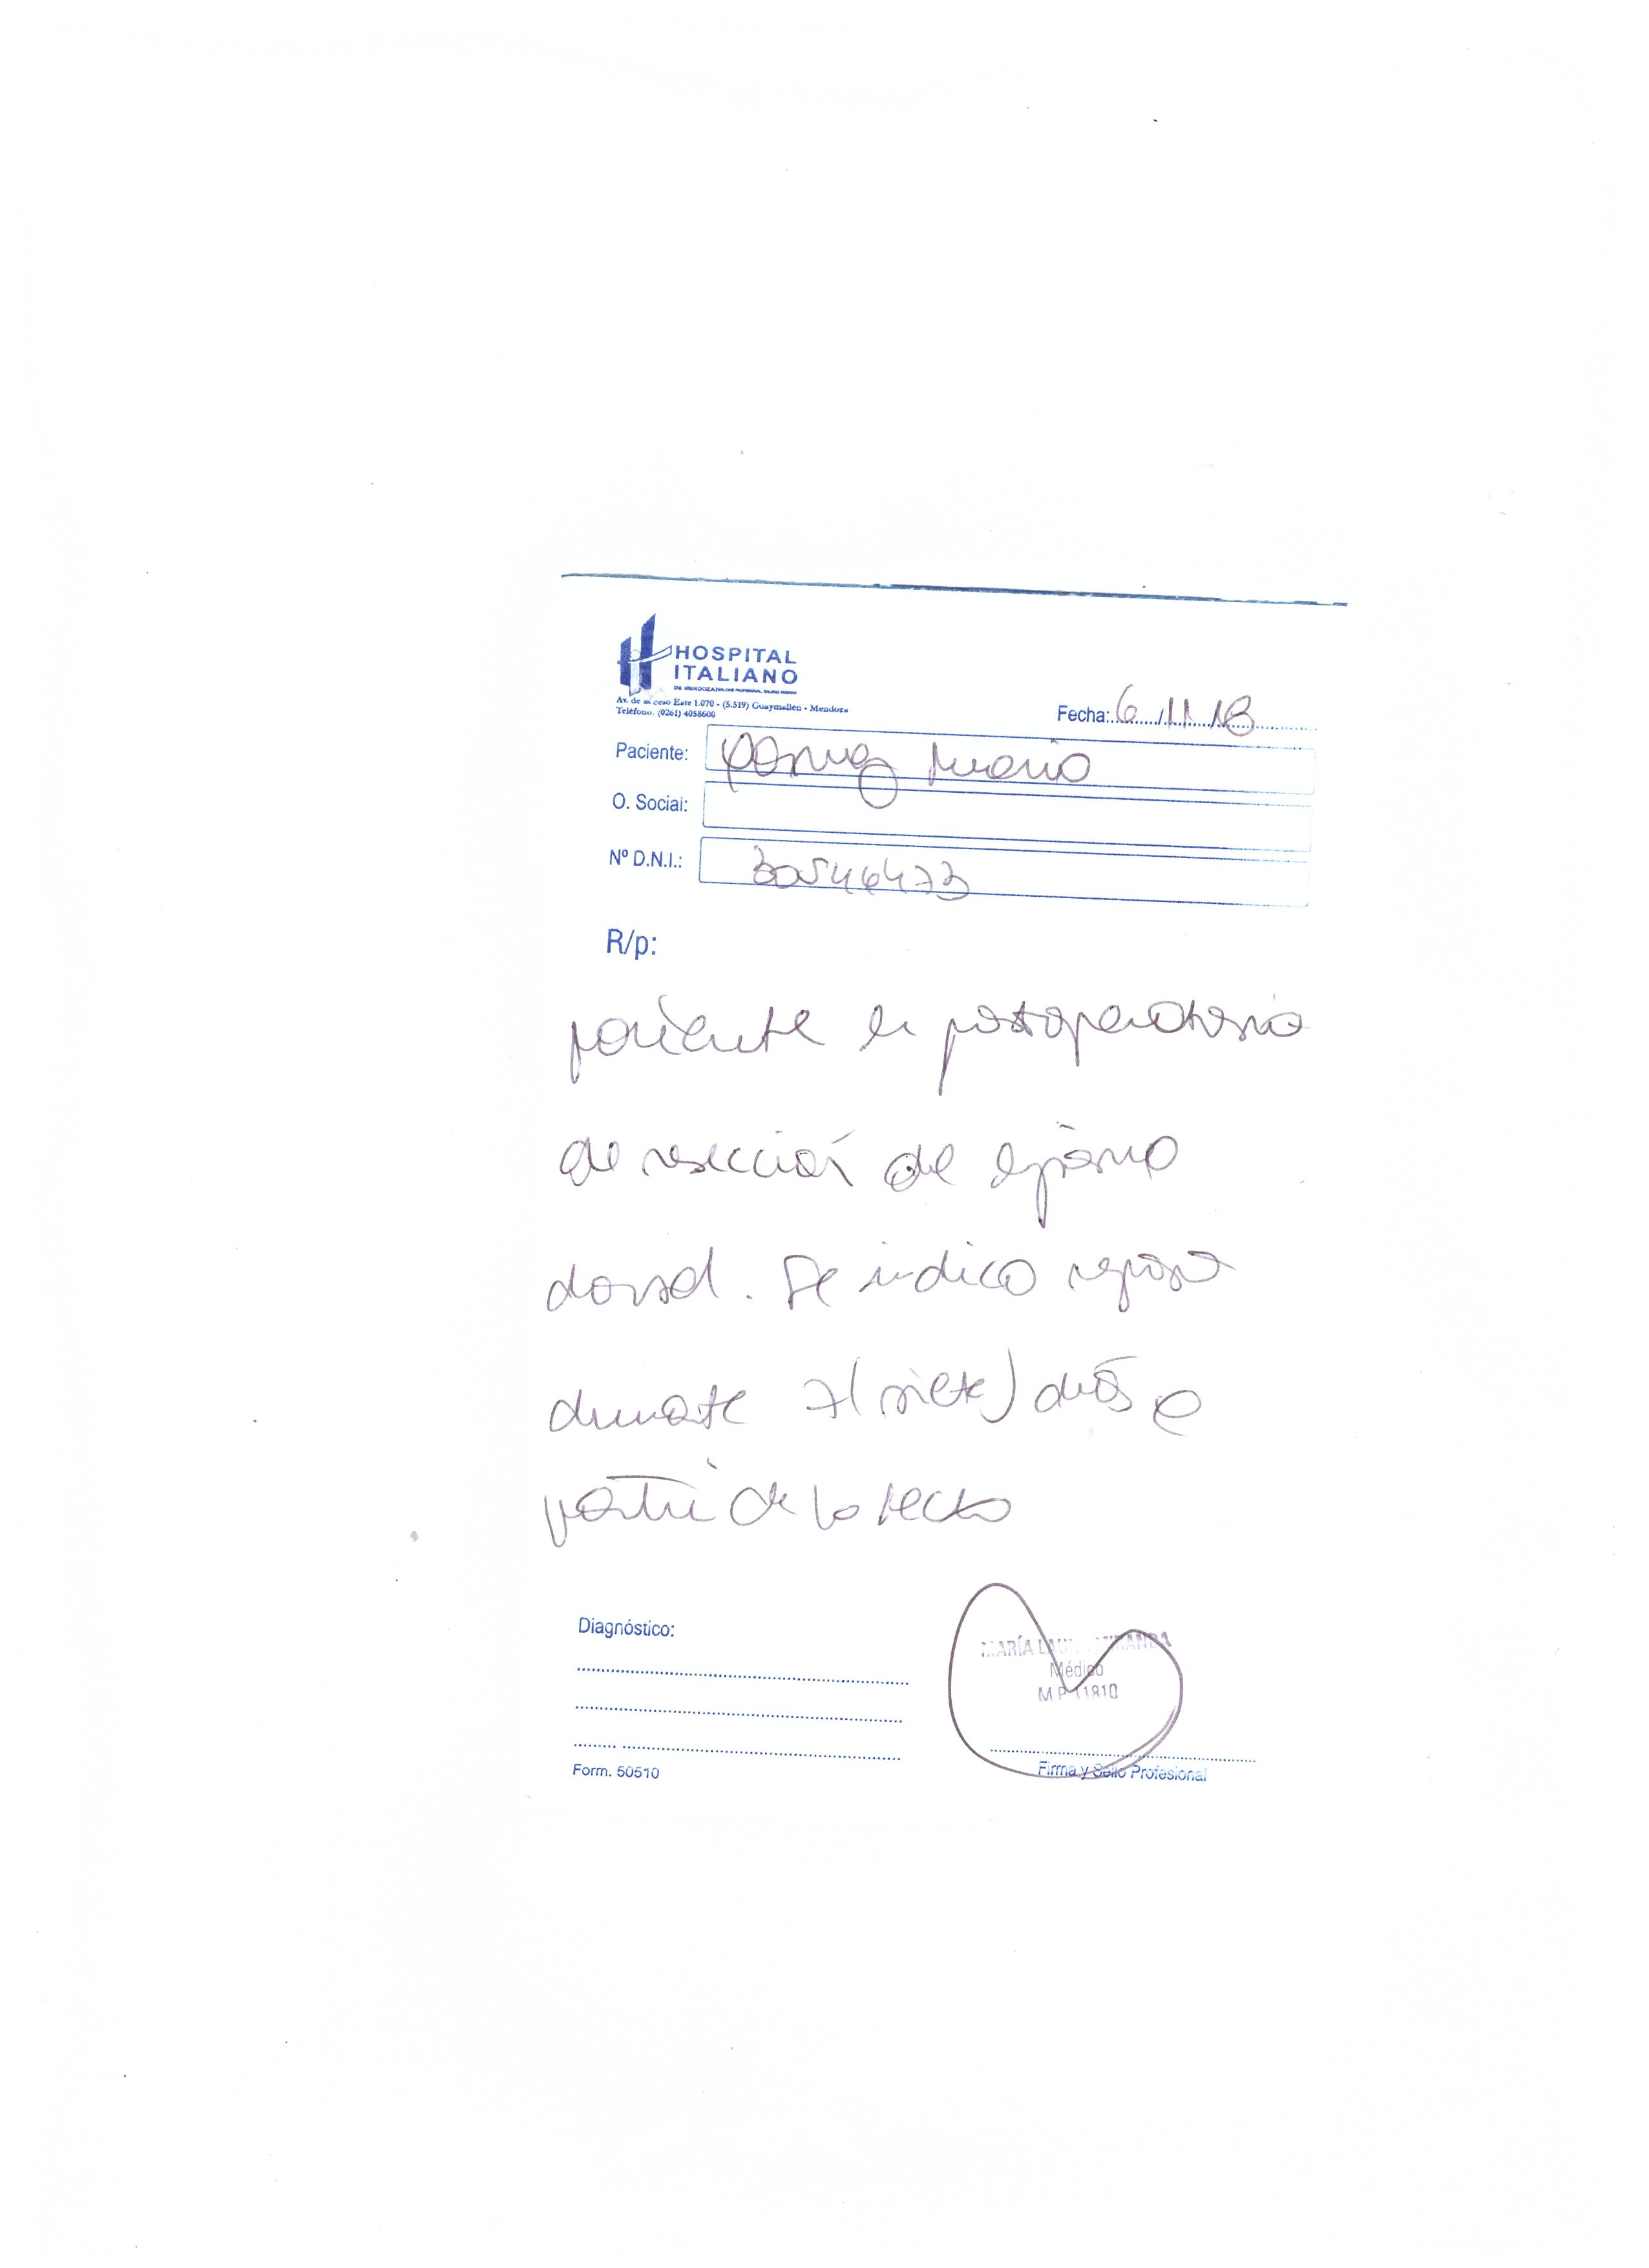 HOSPITAL
ITALIANO
Av. de acceso Este 1.070 - (5.519) Guaymallén - Mendoza
Teléfono. (0261) 4058600
Fecha: 6/11/18
Paciente:
O. Social:
Nº D.N.I.: 30546473
R/p:
paciente en postoperatorio
de resección de
dorsal. Se indica reposo
durante 7 (siete) días a
partir de la fecha
Diagnóstico:
MARÍA
Médico
M.P. 11810
Form. 50510
Firma y Sello Profesional